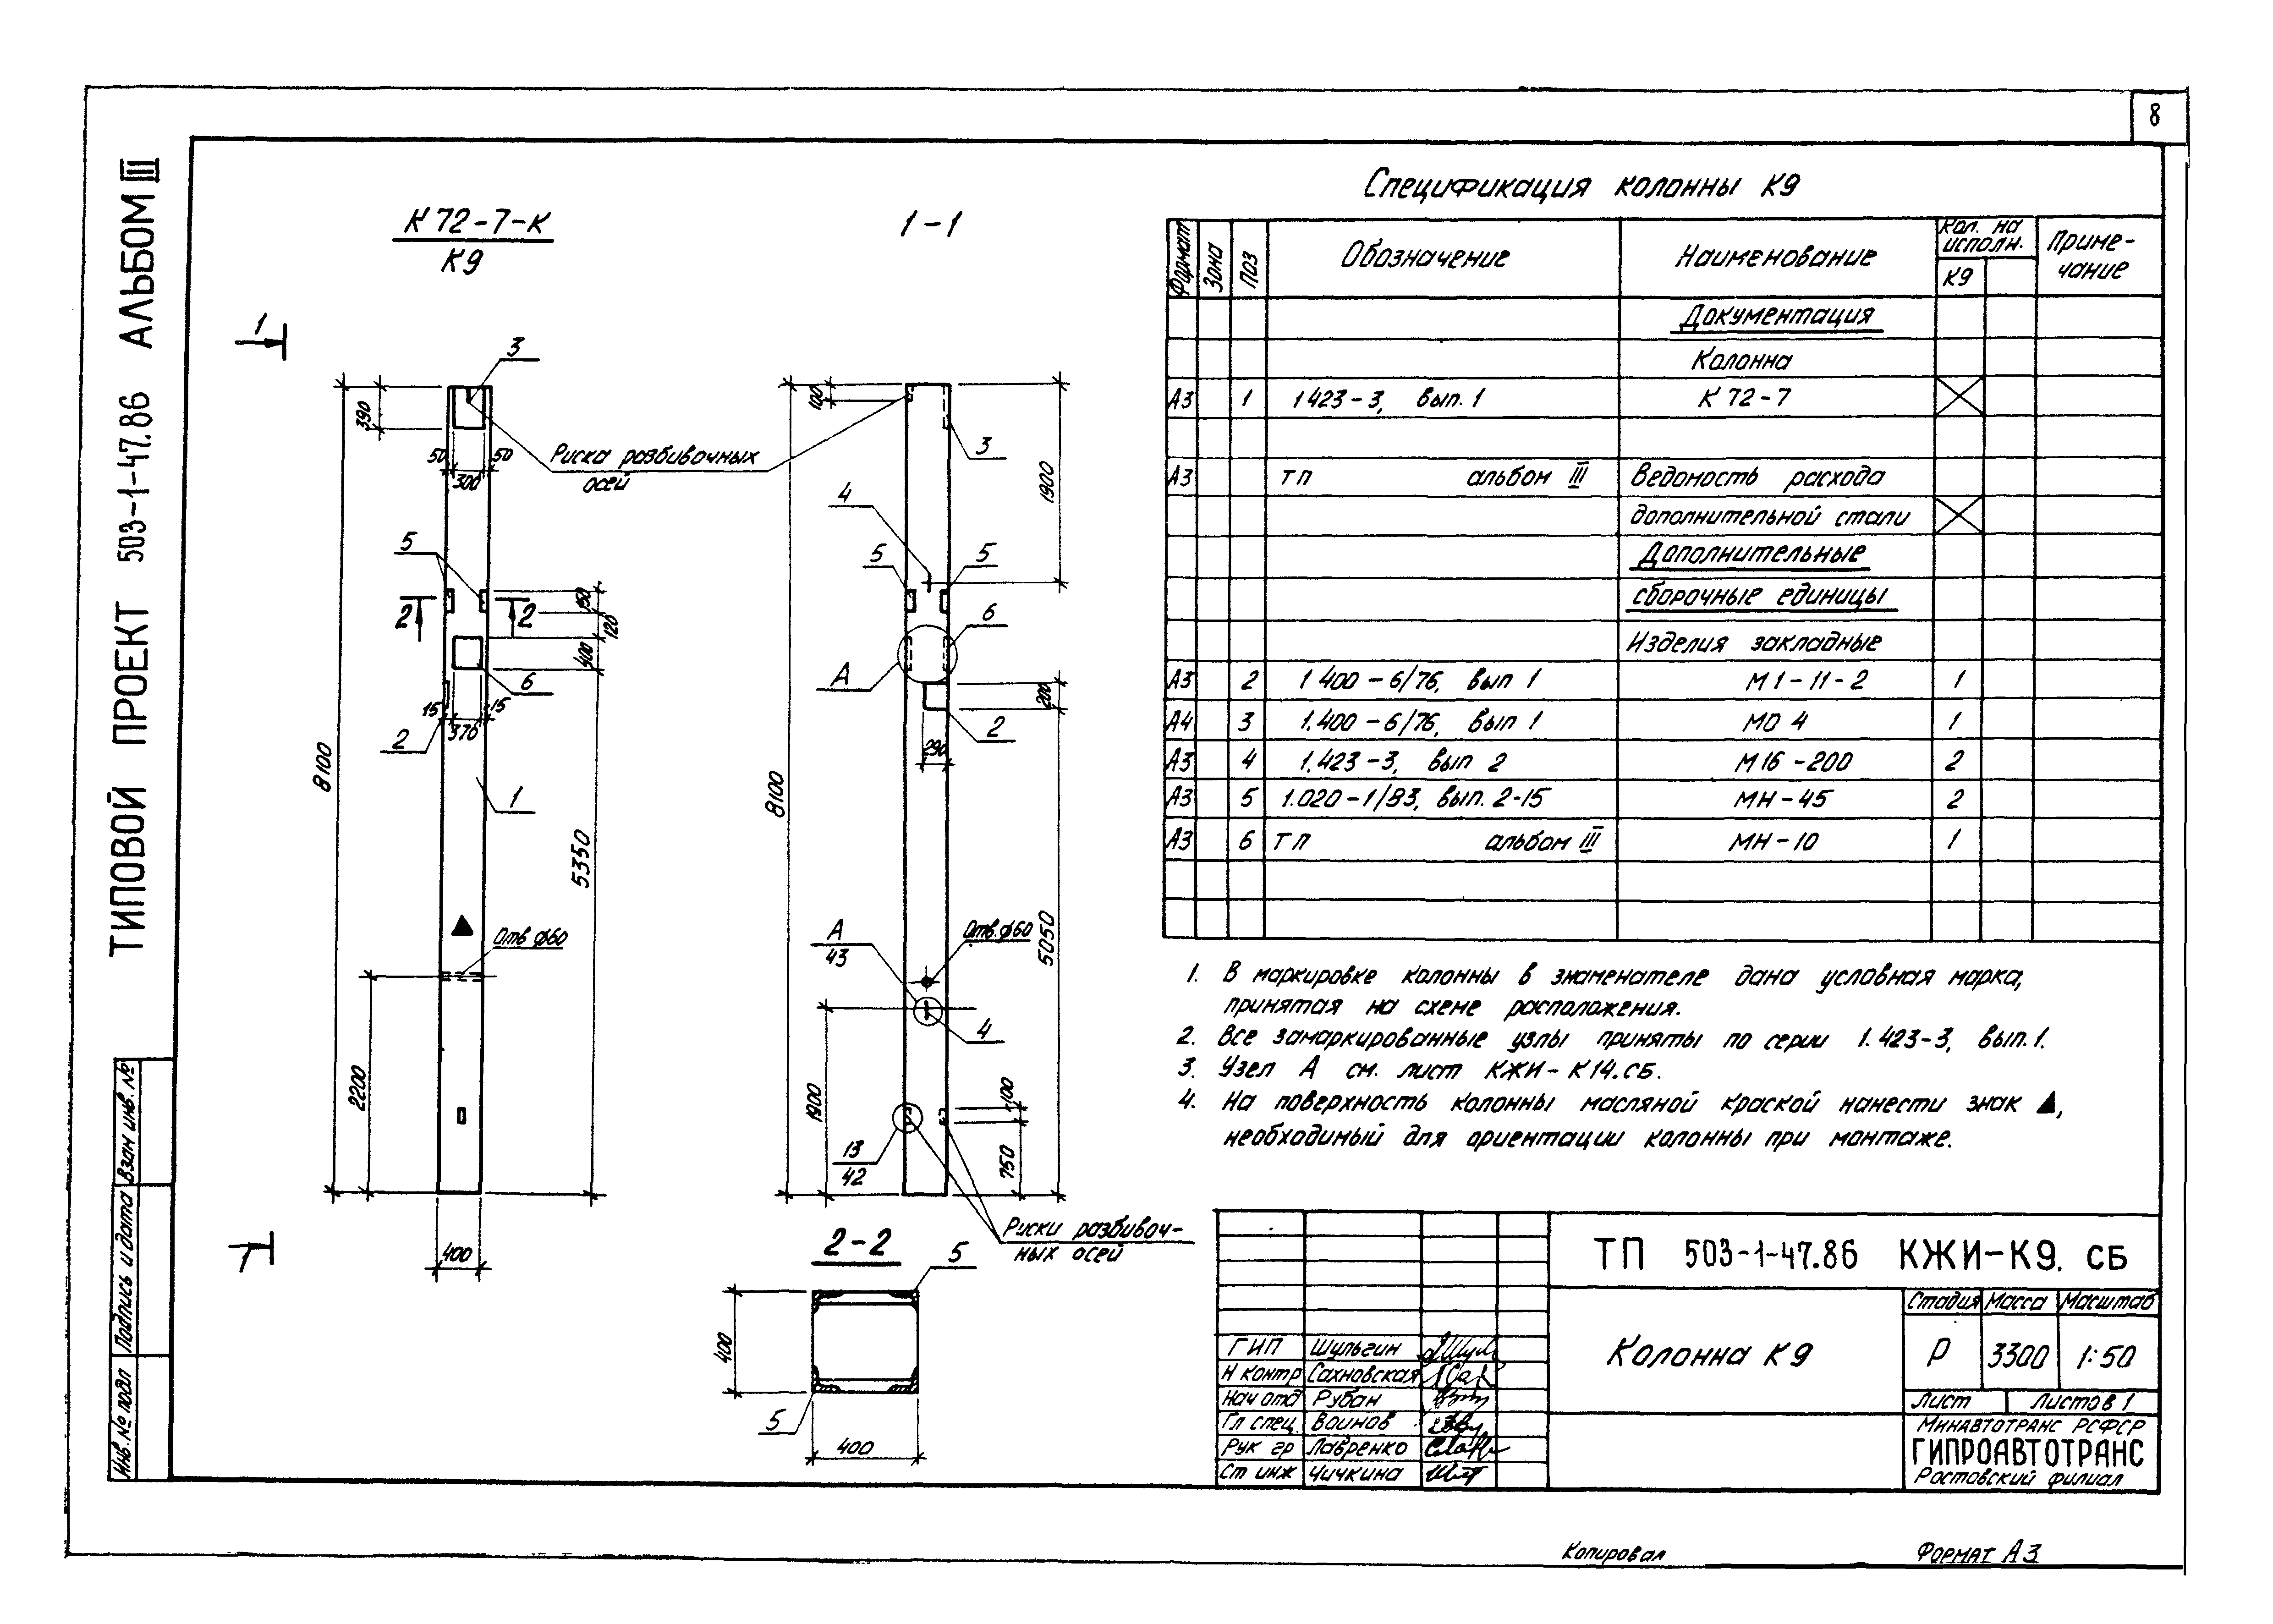 8
ТИПОВОЙ ПРОЕКТ 503-1-47.86 АЛЬБОМ III
К 72-7-К
К9
1-1
1
3
390
50
50
300
Риска разбивочных
осей
5
2
2
150
120
400
6
15
15
370
2
8100
1
5350
Отв ф60
2200
400
1
100
3
1900
4
5
5
6
А
200
2
290
8100
5050
А
43
Отв. ф60
4
1900
100
750
13
42
Риски разбивоч-
ных осей
2-2
5
400
5
400
Спецификация колонны К9
Формат Зона Поз Обозначение Наименование Кол. на исполн. К9 Приме-чание
Документация
Колонна
А3 1 1423-3, вып. 1 К 72-7
А3 ТП альбом III Ведомость расхода
дополнительной стали
Дополнительные
сборочные единицы
Изделия закладные
А3 2 1 400-6/76, вып 1 М1-11-2 1
А4 3 1.400-6/76, вып 1 МО 4 1
А3 4 1.423-3, вып 2 М16-200 2
А3 5 1.020-1/83, вып. 2-15 МН-45 2
А3 6 ТП альбом III МН-10 1
1. В маркировке колонны в знаменателе дана условная марка,
принятая на схеме расположения.
2. Все замаркированные узлы приняты по серии 1.423-3, вып.1.
3. Узел А см. лист КЖИ-К14.СБ.
4. На поверхность колонны масляной краской нанести знак ▲,
необходимый для ориентации колонны при монтаже.
ТП 503-1-47.86 КЖИ-К9. СБ
Колонна К9
Стадия Масса Масштаб
Р 3300 1:50
Лист Листов 1
Минавтотранс РСФСР
ГИПРОАВТОТРАНС
Ростовский филиал
ГИП Шульгин
Н контр Сахновская
Нач отд Рубан
Гл спец. Воинов
Рук гр Лавренко
Ст инж Чичкина
Инв. № подл Подпись и дата Взам инв. №
Копировал Формат А3